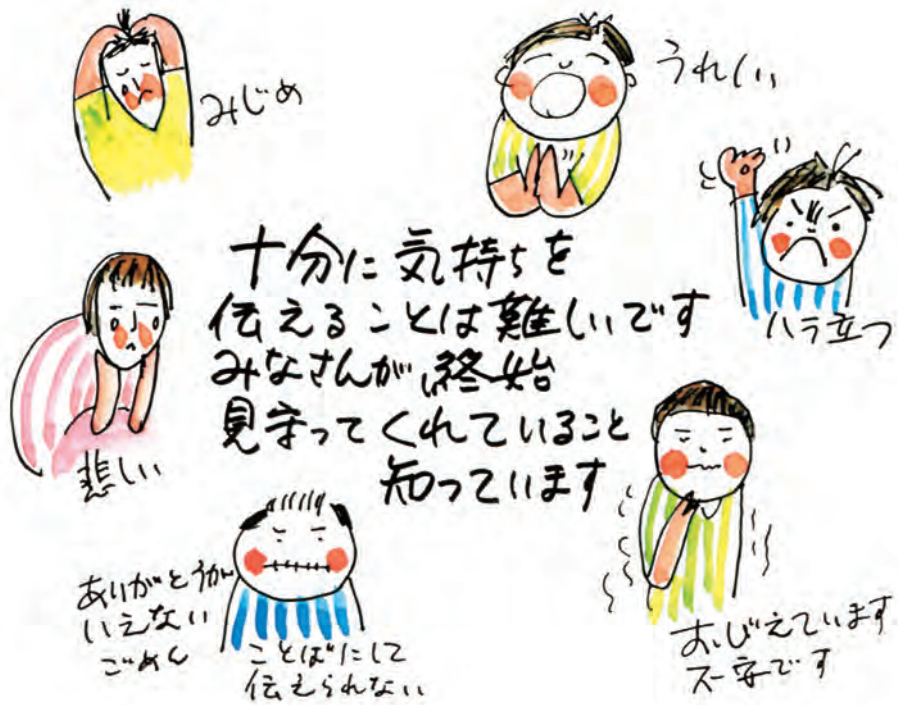 みじめ
うれしい
ハラ立つ
十分に気持ちを
伝えることは難しいです
みなさんが、終始
見守ってくれていること
知っています
悲しい
ありがとうが
いえない
ごめん
ことばにして
伝えられない
おびえています
不安です